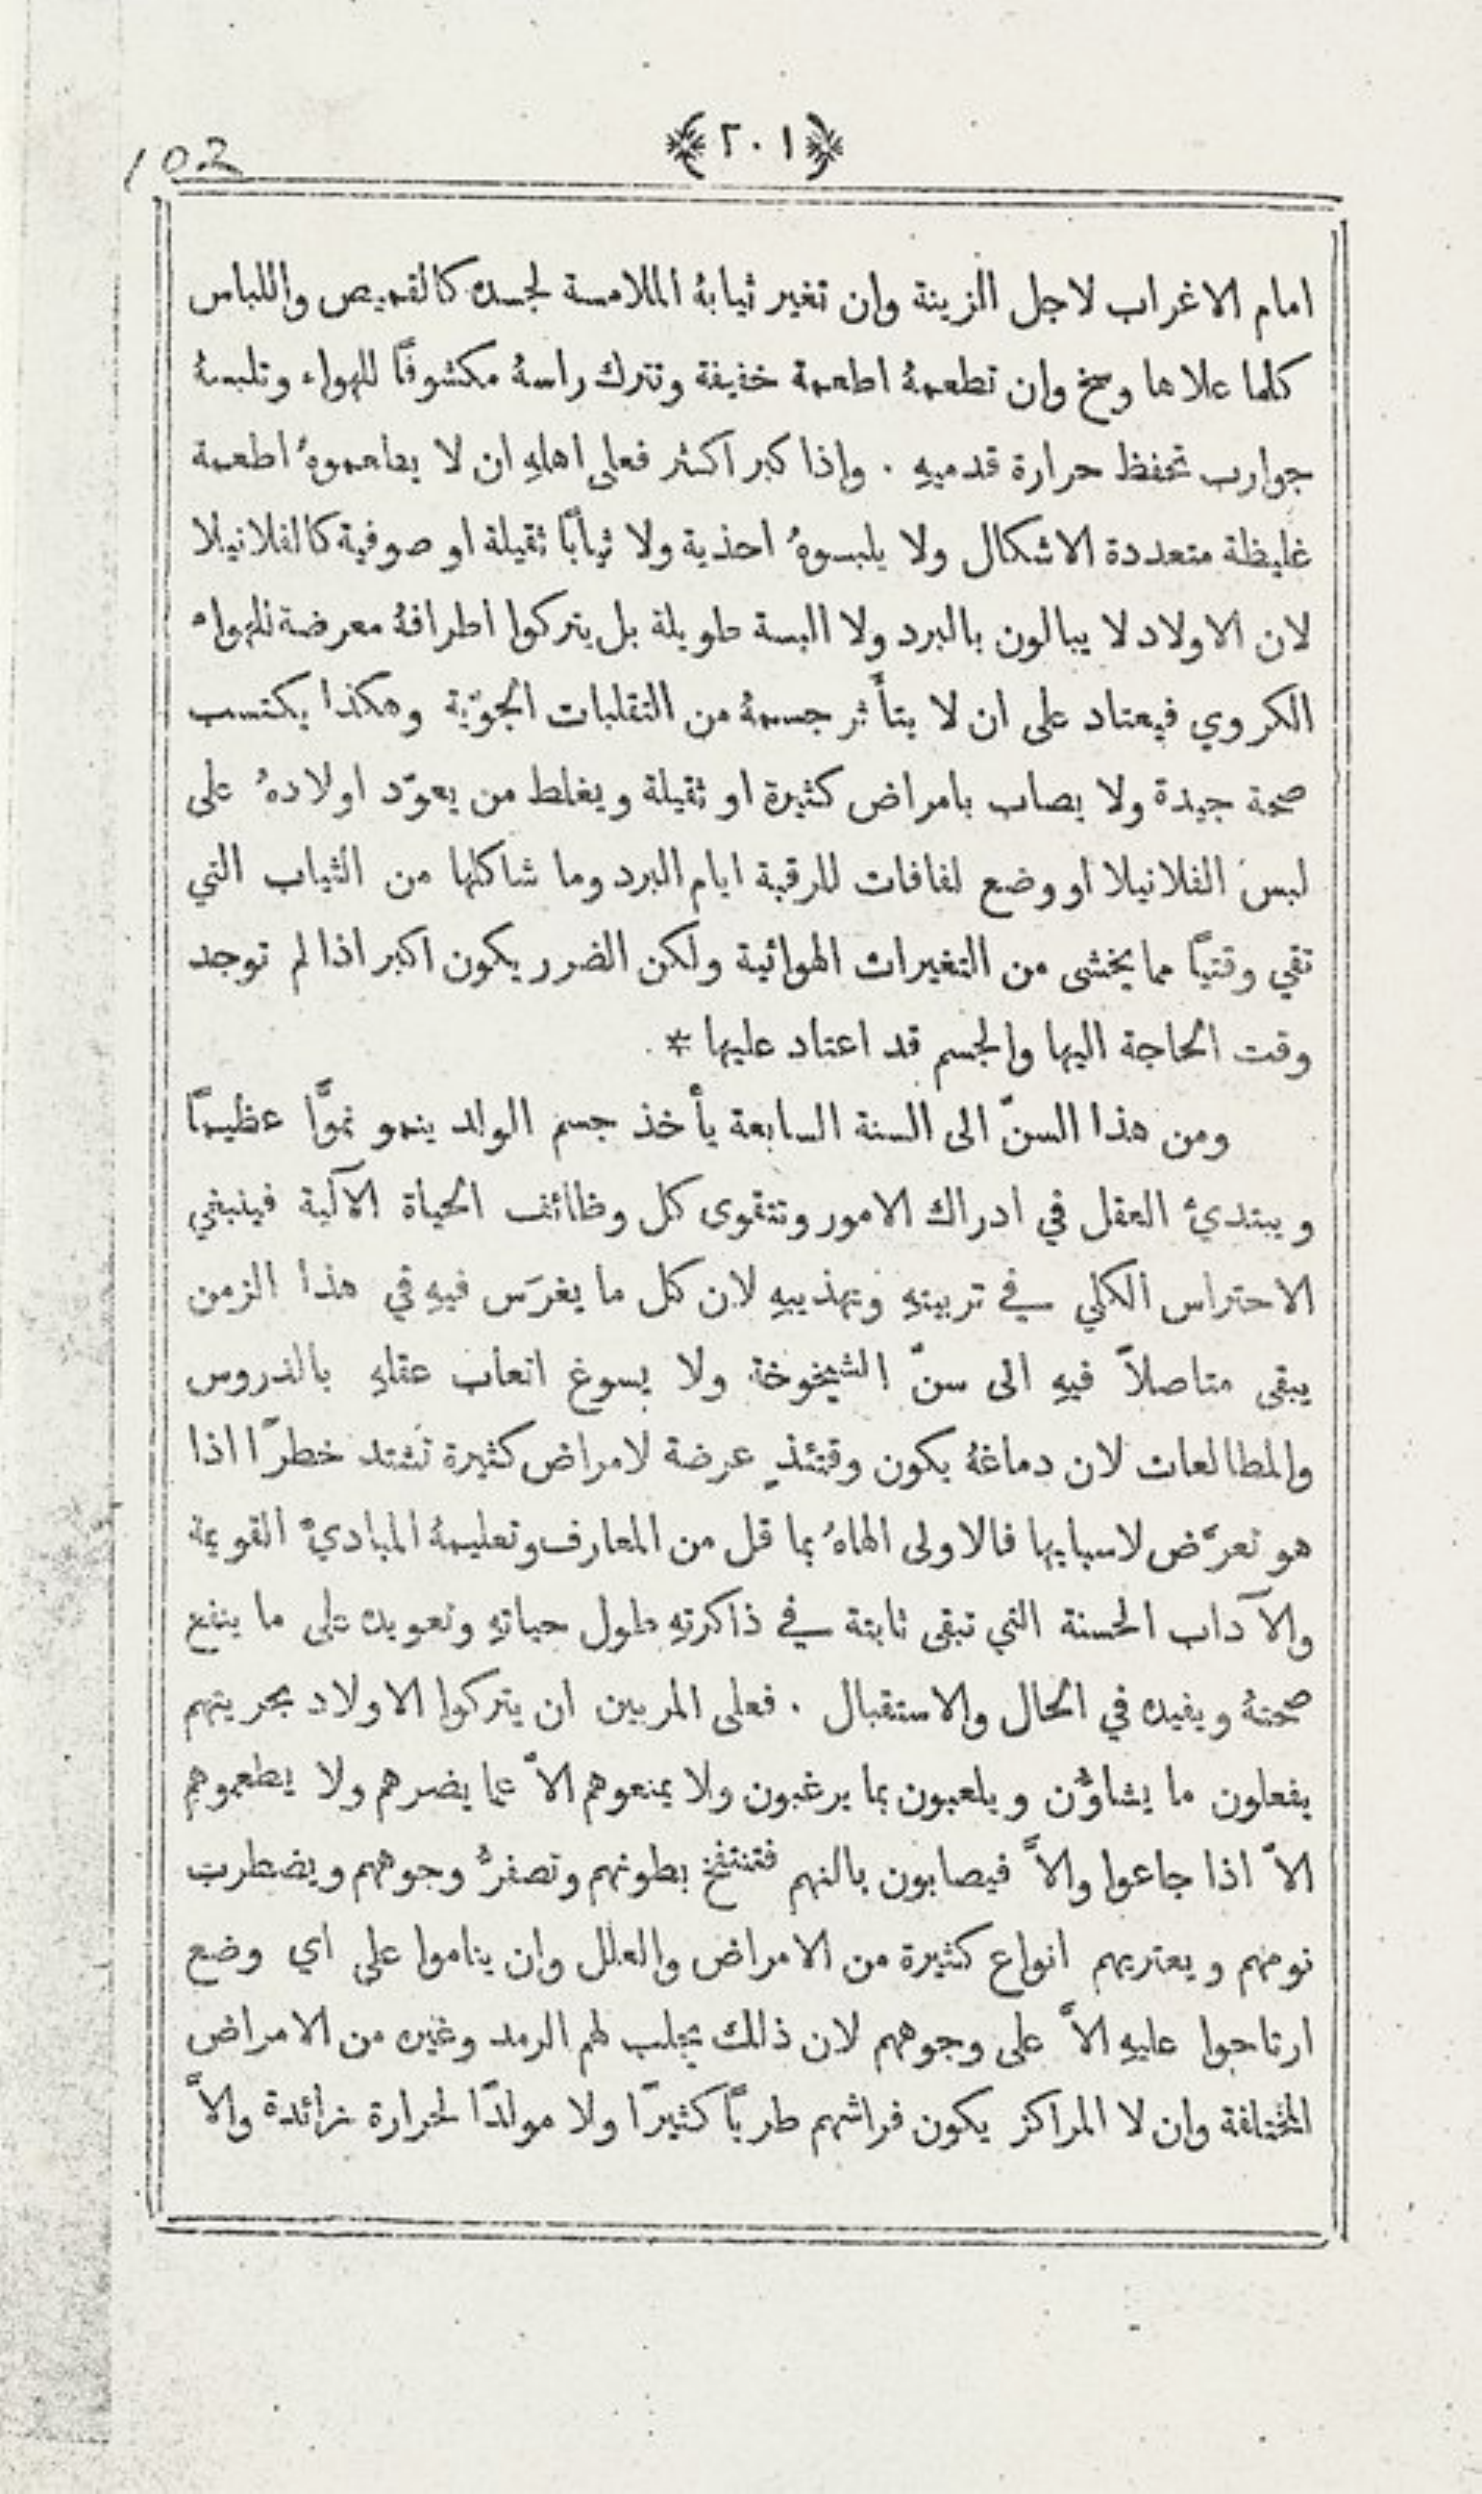 102
﴿٢٠١﴾
امام الاغراب لاجل الزينة وان تغير ثيابهُ الملامسة لجسده كالقميص واللباس
كلما علاها وسخ وان تطعمهُ اطعمة خفيفة وتترك راسهُ مكشوفًا للهواء وتلبسهُ
جوارب تحفظ حرارة قدميهِ . واذا كبر اكثر فعلى اهلهِ ان لا يطعموهُ اطعمة
غليظة متعددة الاشكال ولا يلبسوهُ احذية ولا ثيابًا ثقيلة او صوفية كالفلانيلا
لان الاولاد لا يبالون بالبرد ولا البسة طويلة بل يتركوا اطرافهُ معرضة للهواء
الكروي فيعتاد على ان لا يتأثر جسمهُ من التقلبات الجوّية وهكذا يكتسب
صحة جيدة ولا يصاب بامراض كثيرة او ثقيلة ويغلط من يعوّد اولادهُ على
لبس الفلانيلا او وضع لفافات للرقبة ايام البرد وما شاكلها من الثياب التي
تقي وقتيًا مما يخشى من التغيرات الهوائية ولكن الضرر يكون اكبر اذا لم توجد
وقت الحاجة اليها والجسم قد اعتاد عليها *
ومن هذا السنّ الى السنة السابعة يأخذ جسم الولد ينمو نموًّا عظيمًا
ويبتدئ العقل في ادراك الامور وتتقوى كل وظائف الحياة الآلية فينبغي
الاحتراس الكلي في تربيتهِ وتهذيبهِ لان كل ما يغرَس فيهِ في هذا الزمن
يبقى متاصلاً فيهِ الى سنّ الشيخوخة ولا يسوغ اتعاب عقلهِ بالدروس
والمطالعات لان دماغهُ يكون وقتئذٍ عرضة لامراض كثيرة تشتد خطرًا اذا
هو تعرَّض لاسبابها فالاولى الهاهُ بما قل من المعارف وتعليمهُ المباديَّ القويمة
والآداب الحسنة التي تبقى ثابتة في ذاكرتهِ طول حياتهِ وتعويده على ما ينفع
صحتهُ ويفيده في الحال والاستقبال . فعلى المربين ان يتركوا الاولاد بحريتهم
يفعلون ما يشاؤُن ويلعبون بما يرغبون ولا يمنعوهم الاَّ عما يضرهم ولا يطعموهم
الاَّ اذا جاعوا والاَّ فيصابون بالنهم فتنتفخ بطونهم وتصفرُّ وجوههم ويضطرب
نومهم ويعتريهم انواع كثيرة من الامراض والعلل وان يناموا على اي وضع
ارتاحوا عليهِ الاَّ على وجوههم لان ذلك يجلب لهم الرمد وغيره من الامراض
المختلفة وان لا المراكز يكون فراشهم طريًّا كثيرًا ولا مولدًا لحرارة زائدة والاَّ